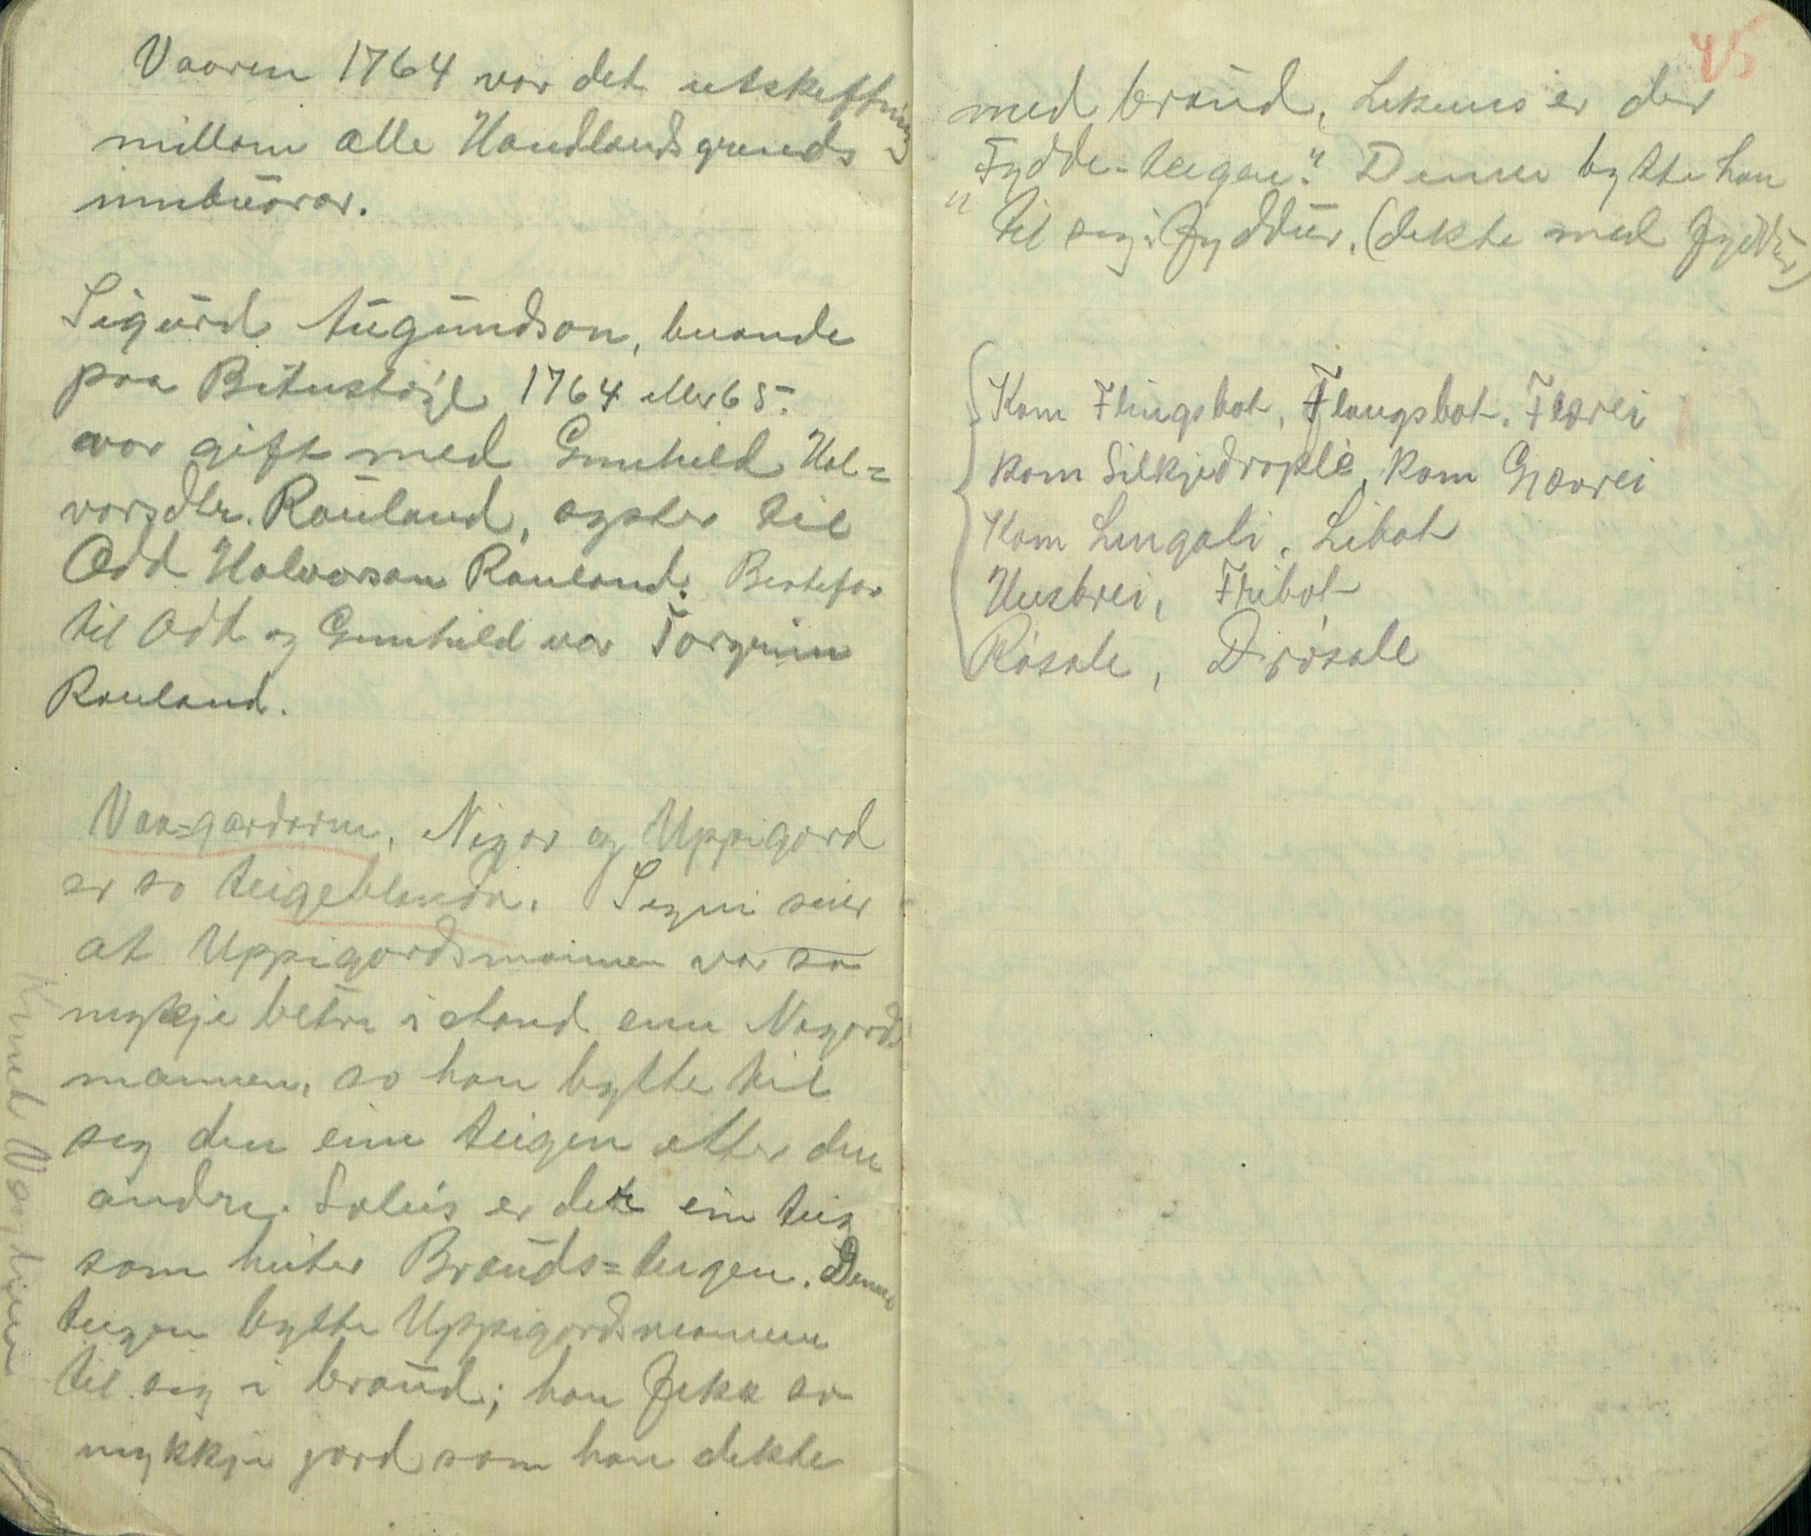 Vaaren 1764 var det utskiftning
millom alle Haudlandsgrends
innbuarar.
Sigurd Augundson, buande
paa Bitustøyl 1764 eller 65.
var gift med Gunhild Hal=
vorsdtr. Rauland, syster til
Odd Halvorson Rauland. Bestefar
til Odd og Gunhild var Torgrim
Rauland.
Vaa=gardarne, Nigar og Uppigard
er so teigeblanda. Segni seier
at Uppigardsmannen var so
mykje betre i stand enn Nigards
mannen, so han bytte til
seg den eine teigen etter den
andre. Soleis er det ein teig
som heiter Brauds=teigen. Denne
teigen bytte Uppigardsmannen
til seg i braud; han fekk so
mykkje jord som han dekte
Knut Vaa
45
med braud. Likeins er der
"Fydde-teigen". Denne bytte han
til seg i fyddur. (dekte med fyddur)
Kom Flingsbot, Flaugsbot. Flærei
kom Silkjedrople, kom Gjævrei
Kom Lingali, Libot
Husbrei, Flibot
Røsole, Drøsole